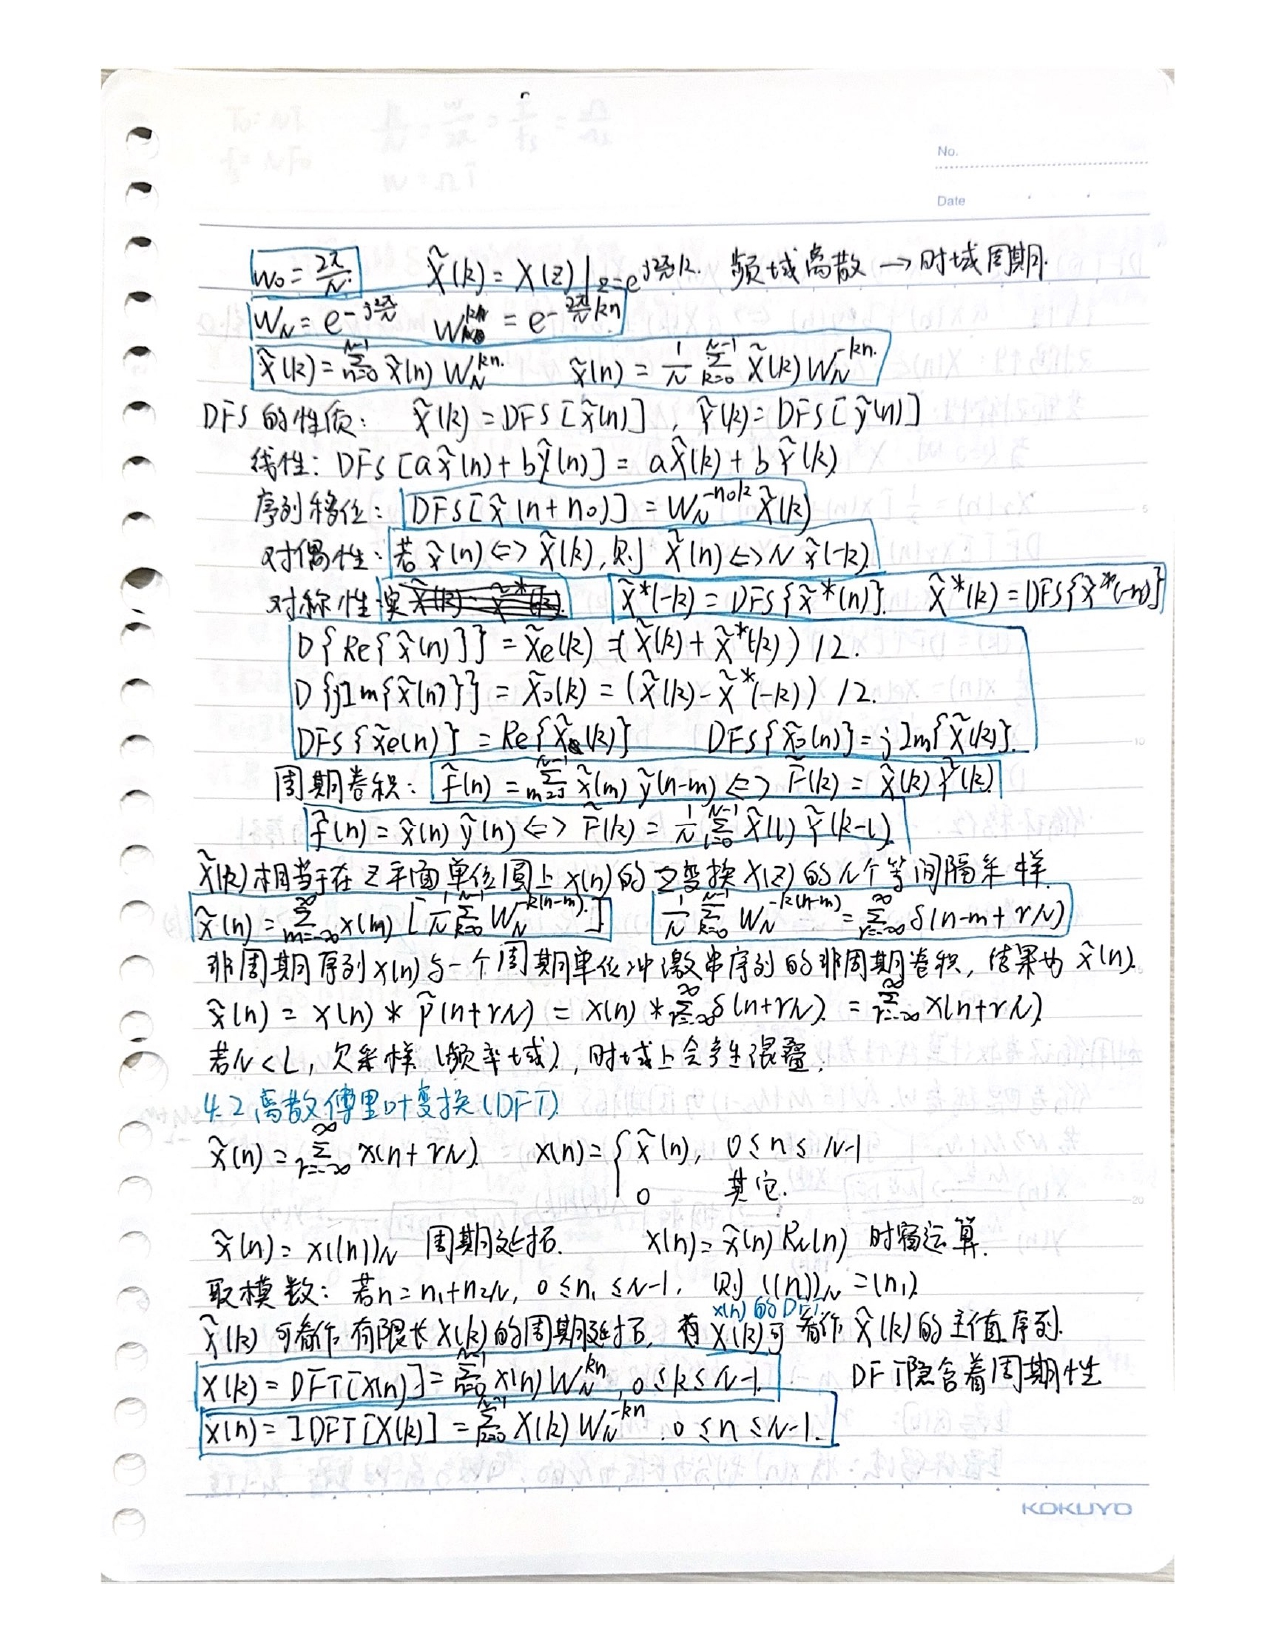 No.
Date
W₀ = 2π/N  X̃(k) = X(z)|z=e^{j2π/N k}  频域离散 → 时域周期.
W_N = e^{-j2π/N}  W_N^{kn} = e^{-2π/N kn}
X̃(k) = Σ_{n=0}^{N-1} x̃(n) W_N^{kn}.  x̃(n) = 1/N Σ_{k=0}^{N-1} X̃(k) W_N^{-kn}.
DFS的性质: X̃(k) = DFS[x̃(n)], Ỹ(k) = DFS[ỹ(n)]
线性: DFS[ax̃(n) + bỹ(n)] = aX̃(k) + bỸ(k)
序列移位: DFS[x̃(n+n₀)] = W_N^{-n₀k} X̃(k)
对偶性: 若x̃(n) <=> X̃(k), 则 X̃(n) <=> N x̃(-k)
对称性 X̃*(-k) = DFS{x̃*(n)}. X̃*(k) = DFS{x̃*(-n)}
D{Re{x̃(n)}} = X̃e(k) = (X̃(k) + X̃*(-k)) / 2.
D{jIm{x̃(n)}} = X̃o(k) = (X̃(k) - X̃*(-k)) / 2.
DFS{x̃e(n)} = Re{X̃(k)}  DFS{x̃o(n)} = j Im{X̃(k)}.
周期卷积: f̃(n) = Σ_{m=0}^{N-1} x̃(m) ỹ(n-m) <=> F̃(k) = X̃(k) Ỹ(k)
f̃(n) = x̃(n) ỹ(n) <=> F̃(k) = 1/N Σ_{l=0}^{N-1} X̃(l) Ỹ(k-l)
X̃(k)相当于在Z平面单位圆上x(n)的Z变换X(Z)的N个等间隔采样.
x̃(n) = Σ_{m=-∞}^{∞} x(m) [1/N Σ_{k=0}^{N-1} W_N^{-k(n-m)}.]  1/N Σ_{k=0}^{N-1} W_N^{-k(n-m)} = Σ_{r=-∞}^{∞} δ(n-m+rN)
非周期序列x(n)与一个周期单位冲激串序列的非周期卷积, 结果为x̃(n).
x̃(n) = x(n) * p̃(n+rN) = x(n) * Σ_{r=-∞}^{∞} δ(n+rN) = Σ_{r=-∞}^{∞} x(n+rN)
若N<L, 欠采样(频率域), 时域上会产生混叠.
4.2 离散傅里叶变换(DFT)
x̃(n) = Σ_{r=-∞}^{∞} x(n+rN)  x(n) = { x̃(n), 0≤n≤N-1
0 其它.
x̃(n) = x((n))_N 周期延拓.  x(n) = x̃(n) R_N(n) 时窗运算.
取模数: 若n = n₁+n₂N, 0≤n₁≤N-1, 则((n))_N = (n₁)
x(n)的DFT
X̃(k)可看作有限长X(k)的周期延拓, 有X(k)可看作X̃(k)的主值序列.
X(k) = DFT[x(n)] = Σ_{n=0}^{N-1} x(n) W_N^{kn}, 0≤k≤N-1  DFT隐含着周期性
x(n) = IDFT[X(k)] = Σ_{k=0}^{N-1} X(k) W_N^{-kn}, 0≤n≤N-1.
KOKUYO